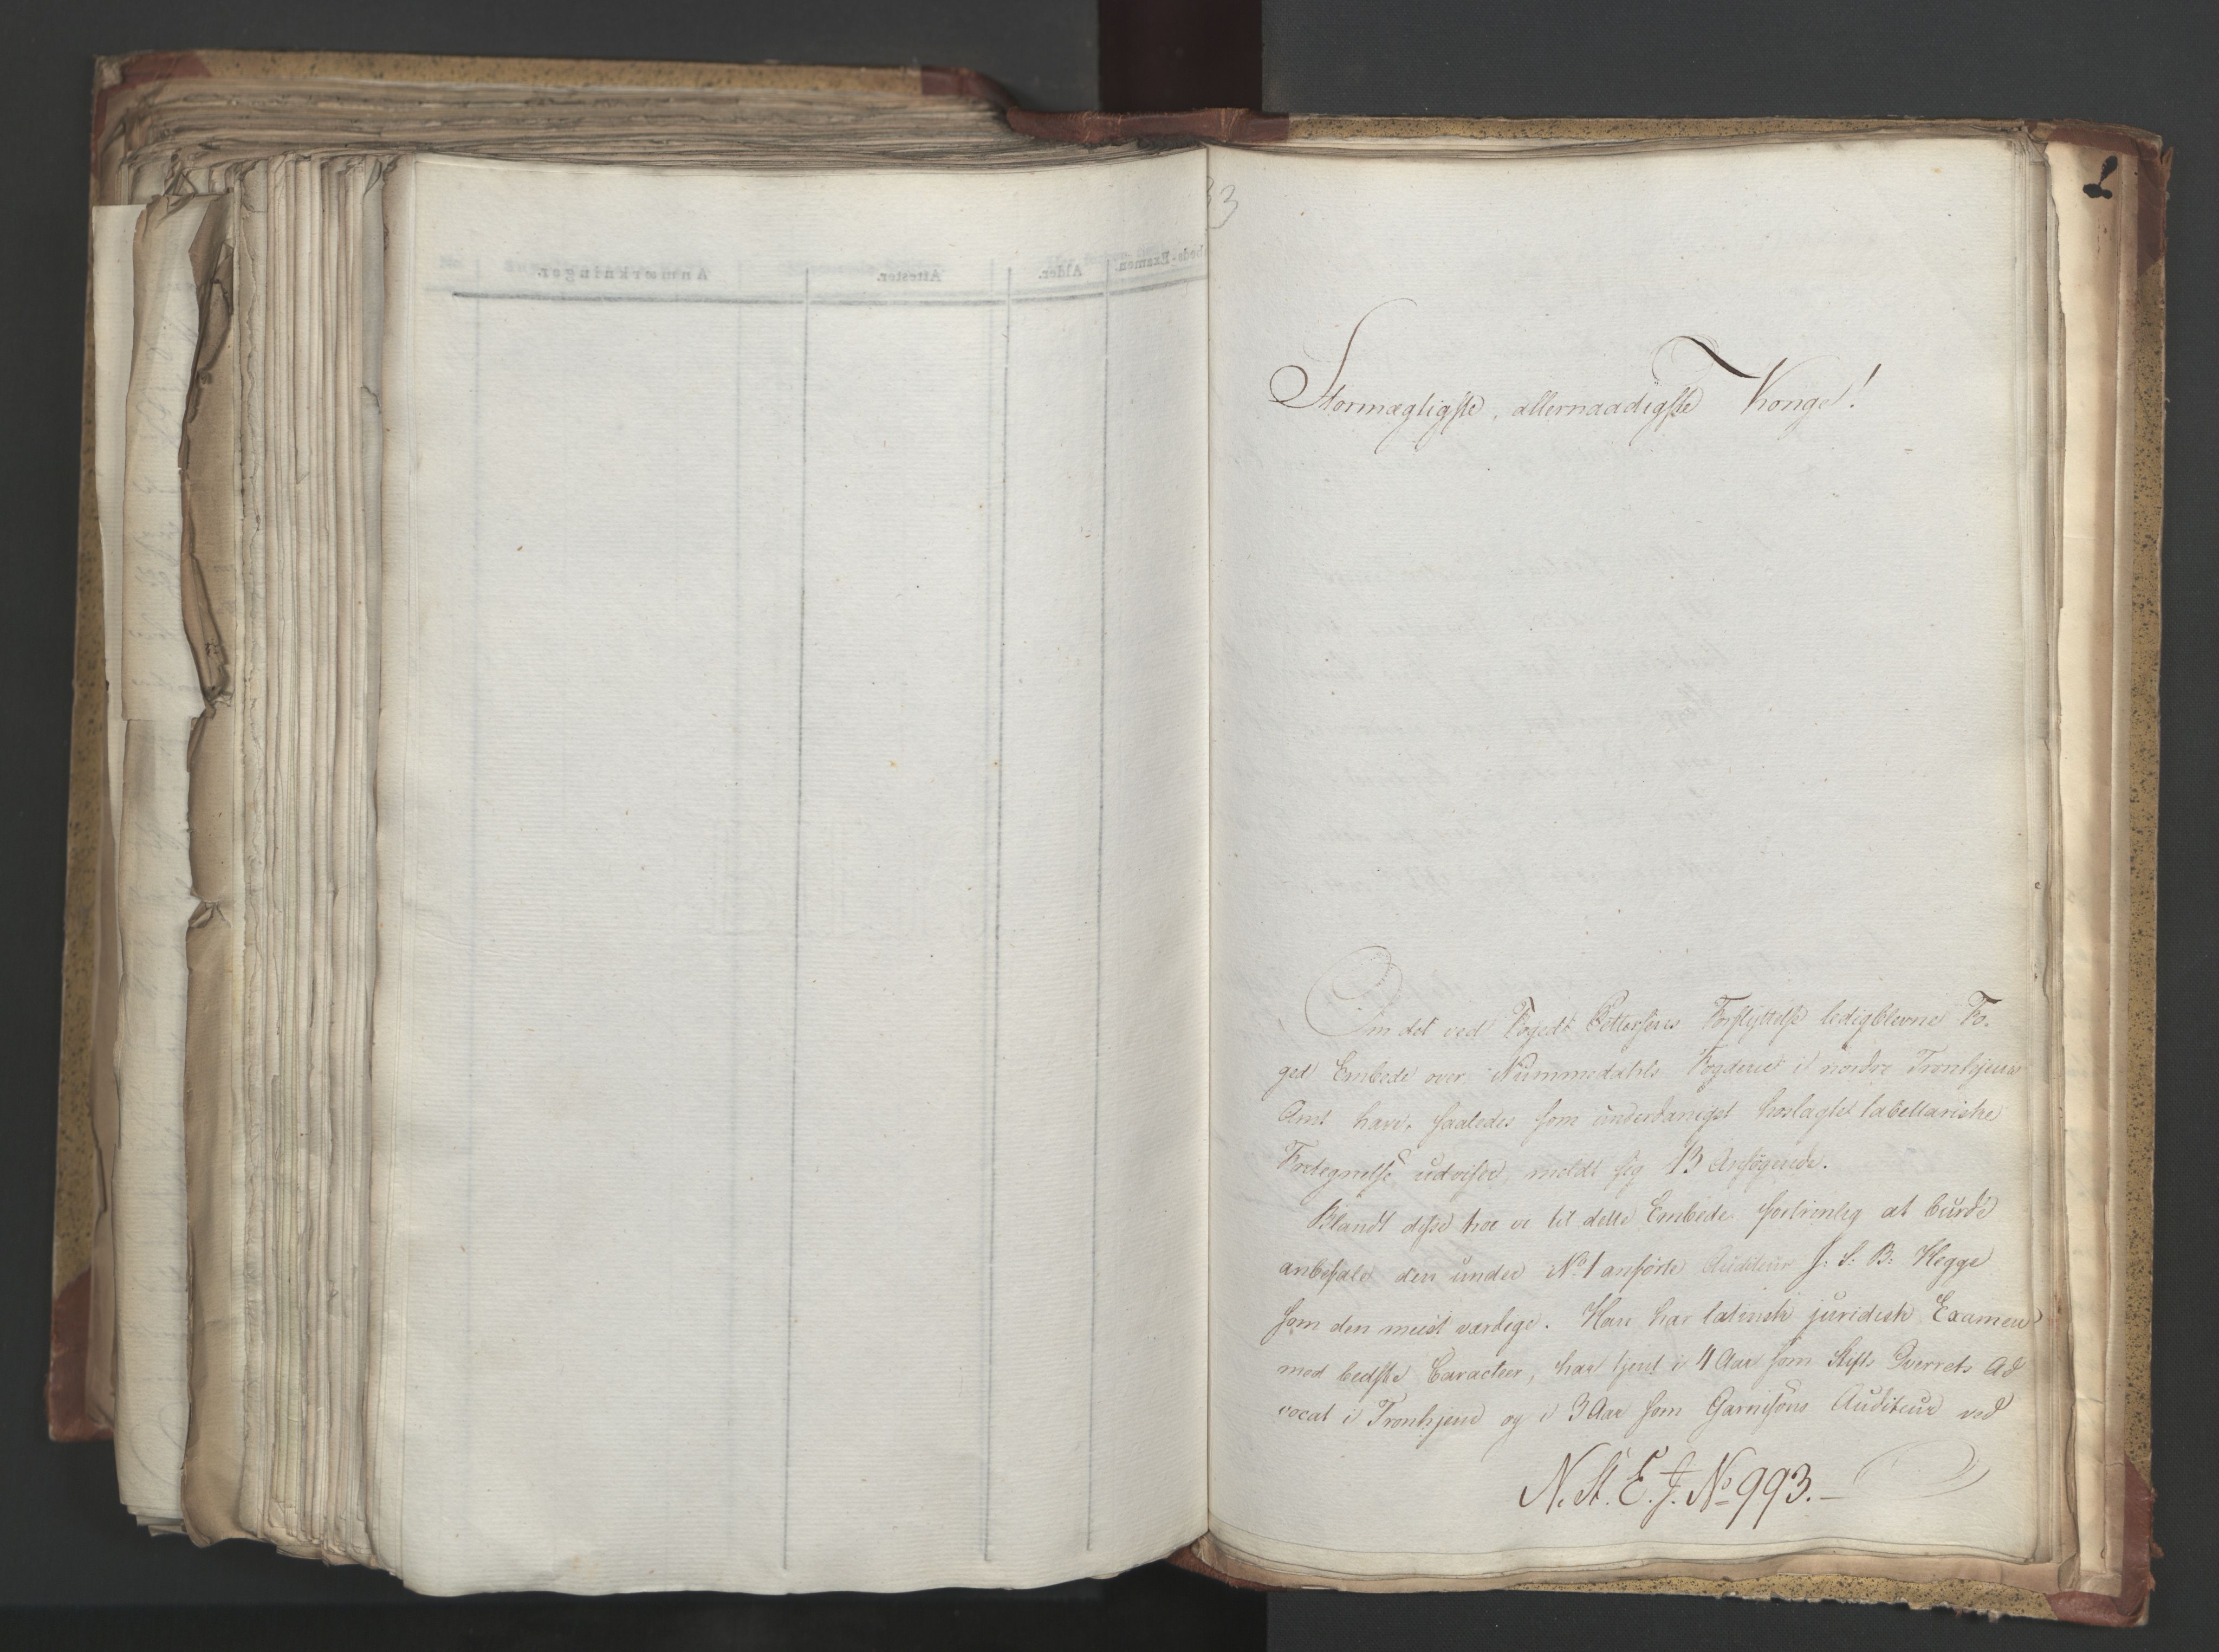 33
Stormægtigste, allernaadigste Konge!
Om det ved Foged Pettersens Forflyttelse ledigblevne Fo-
ged Embede over Nummedahls Fogderie i nordre Tronhjems
Amt have, saaledes som underdanigst hoslagte tabellariske
Fortegnelse udviser, meldt sig 13 Ansøgende.
Blandt disse troe vi til dette Embede fortrinlig at burde
anbefale den under No 1 anførte Auditeur J: S: B: Hegge
som den meest værdige. Han har latinsk juridisk Examen
med bedste Caracteer, har tjent i 4 Aar som Stifts Overrets Ad
vocat i Tronhjem og i 3 Aar som Garnisons Auditeur ved
N. St. E. J. No 993.